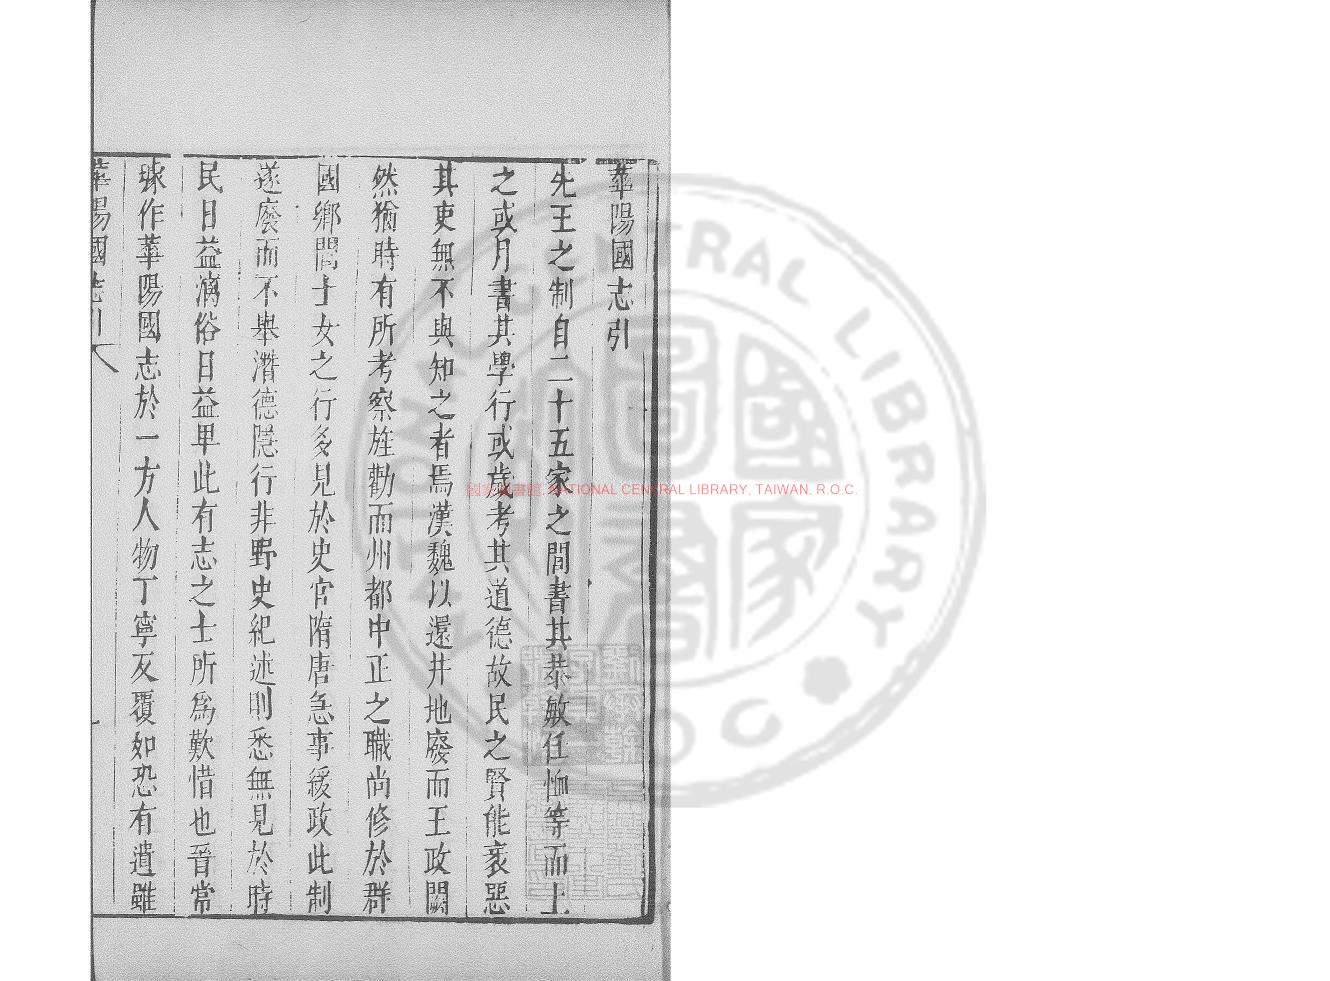 華陽國志引
先王之制自二十五家之間書其恭敏任恤等而上
之或月書其學行或歲考其道德故民之賢能衺惡
其吏無不與知之者焉漢魏以還井地廢而王政闕
然猶時有所考察旌勸而州都中正之職尚修於群
國鄉閭士女之行多見於史官隋唐急事緩政此制
遂廢而不舉潛德隱行非野史紀述則悉無見於時
民日益漓俗日益卑此有志之士所爲歎惜也晉常
璩作華陽國志於一方人物丁寧反覆如恐有遺雖
華陽國志引
國家圖書館, NATIONAL CENTRAL LIBRARY, TAIWAN, R.O.C.